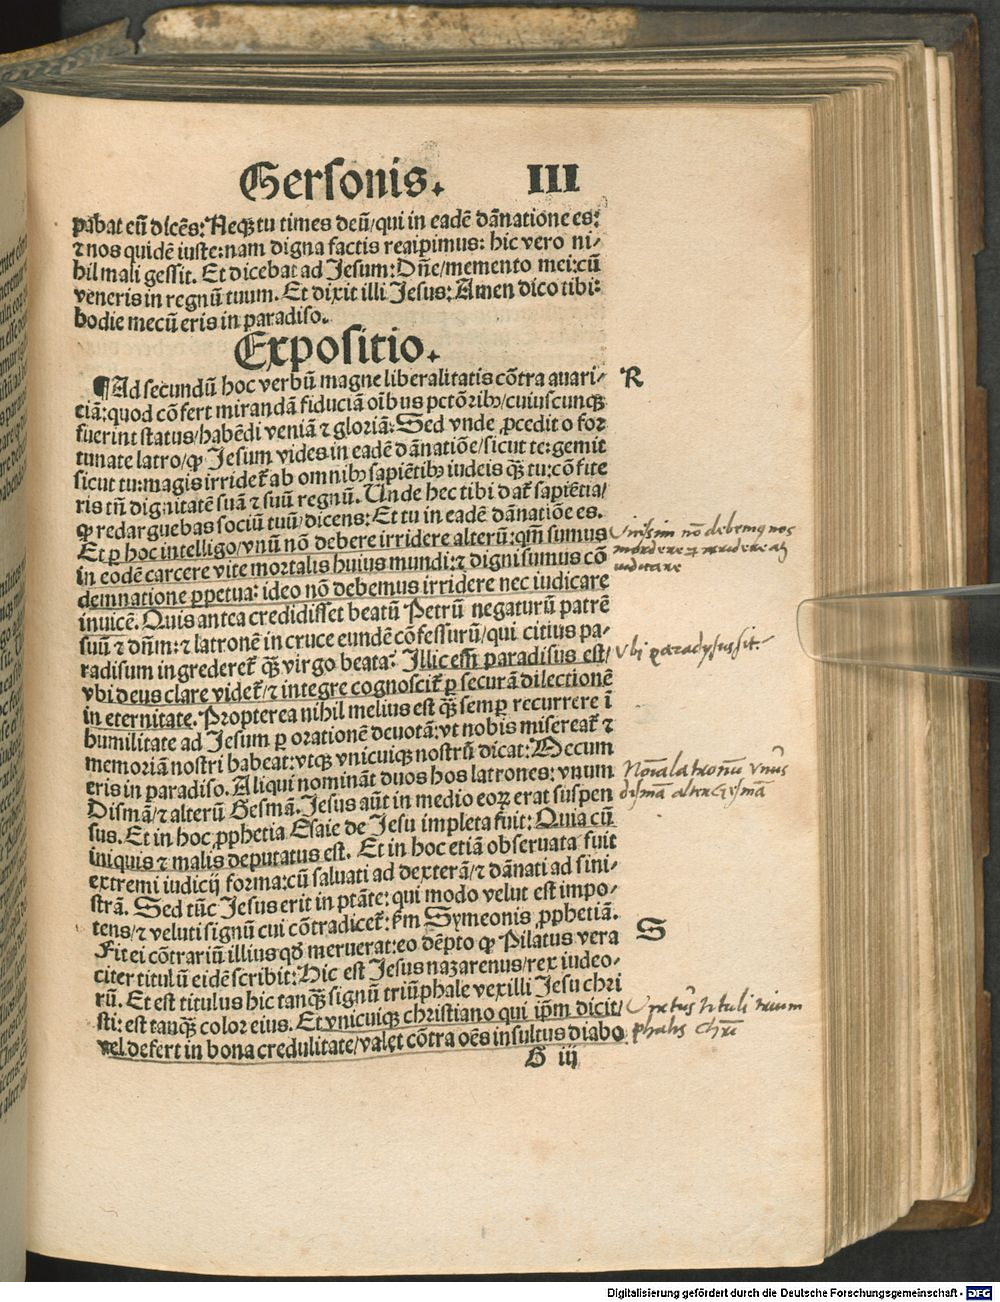 Gersonis. III
pabat eū dicēs: Neqꝫ tu times deū/qui in eadē dānatione es:
⁊ nos quidē iuste: nam digna factis recipimus: hic vero ni/
hil mali gessit. Et dicebat ad Jesum: Dñe/memento mei: cū
veneris in regnū tuum. Et dixit illi Jesus: Amen dico tibi:
hodie mecū eris in paradiso.
Expositio.
¶ Ad secundū hoc verbū magne liberalitatis cōtra auari/
R
ciā: quod cōfert mirandā fiduciā oībus pctōribꝫ/cuiuscunqꝫ
fuerint status/habēdi veniā ⁊ gloriā: Sed vnde ꝓcedit o for
tunate latro/ꝙ Jesum vides in eadē dānatiōe/sicut te: gemit
sicut tu: magis irridet᷑ ab omnibꝫ sapiētibꝫ iudeis qꝫ̄ tu: cōfite
ris tñ dignitatē suā ⁊ suū regnū. Unde hec tibi dat᷑ sapiētia/
ꝙ redarguebas sociū tuū/dicens: Et tu in eadē dānatiōe es.
Et ꝑ hoc intelligo/vnū nō debere irridere alterū: qm̄ sumus
in eodē carcere vite mortalis huius mundi: ⁊ digni sumus cō
demnatione ꝑpetua: ideo nō debemus irridere nec iudicare
inuicē. Quis antea credidisset beatū Petrū negaturū patrē
suū ⁊ dñm: ⁊ latronē in cruce eundē cōfessurū/qui citius pa/
radisum ingrederet᷑ qꝫ̄ virgo beata? Illic em̄ paradisus est/
vbi deus clare videt᷑/⁊ integre cognoscit᷑ ꝑ securā dilectionē
in eternitate. Propterea nihil melius est qꝫ̄ semꝑ recurrere ī
humilitate ad Jesum ꝑ orationē deuotā: vt nobis misereat᷑ ⁊
memoriā nostri habeat: vtqꝫ vnicuiqꝫ nostrū dicat: Mecum
eris in paradiso. Aliqui nomināt duos hos latrones: vnum
Dismā/⁊ alterū Gesmā. Jesus aūt in medio eoꝝ erat suspen
sus. Et in hoc ꝓphetia Esaie de Jesu impleta fuit: Quia cū
iniquis ⁊ malis deputatus est. Et in hoc etiā obseruata fuit
extremi iudicij forma: cū saluati ad dexterā/⁊ dānati ad sini/
strā. Sed tūc Jesus erit in ptāte: qui modo velut est impo/
tens/⁊ veluti signū cui cōtradicet᷑: ẜm Symeonis ꝓphetiā.
S
Fit ei cōtrariū illius qđ meruerat: eo dēpto ꝙ Pilatus vera
citer titulū eidē scribit: Hic est Jesus nazarenus/rex iudeo/
rū. Et est titulus hic tanqꝫ̄ signū triūphale vexilli Jesu chri
sti: est tanqꝫ̄ color eius. Et vnicuiqꝫ christiano qui ip̄m dicit/
vel defert in bona credulitate/valet cōtra oēs insultus diabo
G iij
nō debemꝰ nos
mordere ⁊ irridere
iudicare
Vbi paradysus sit.
latronū vnus
dismā alter Gismā
tituli trium
phalis chri
Digitalisierung gefördert durch die Deutsche Forschungsgemeinschaft - DFG